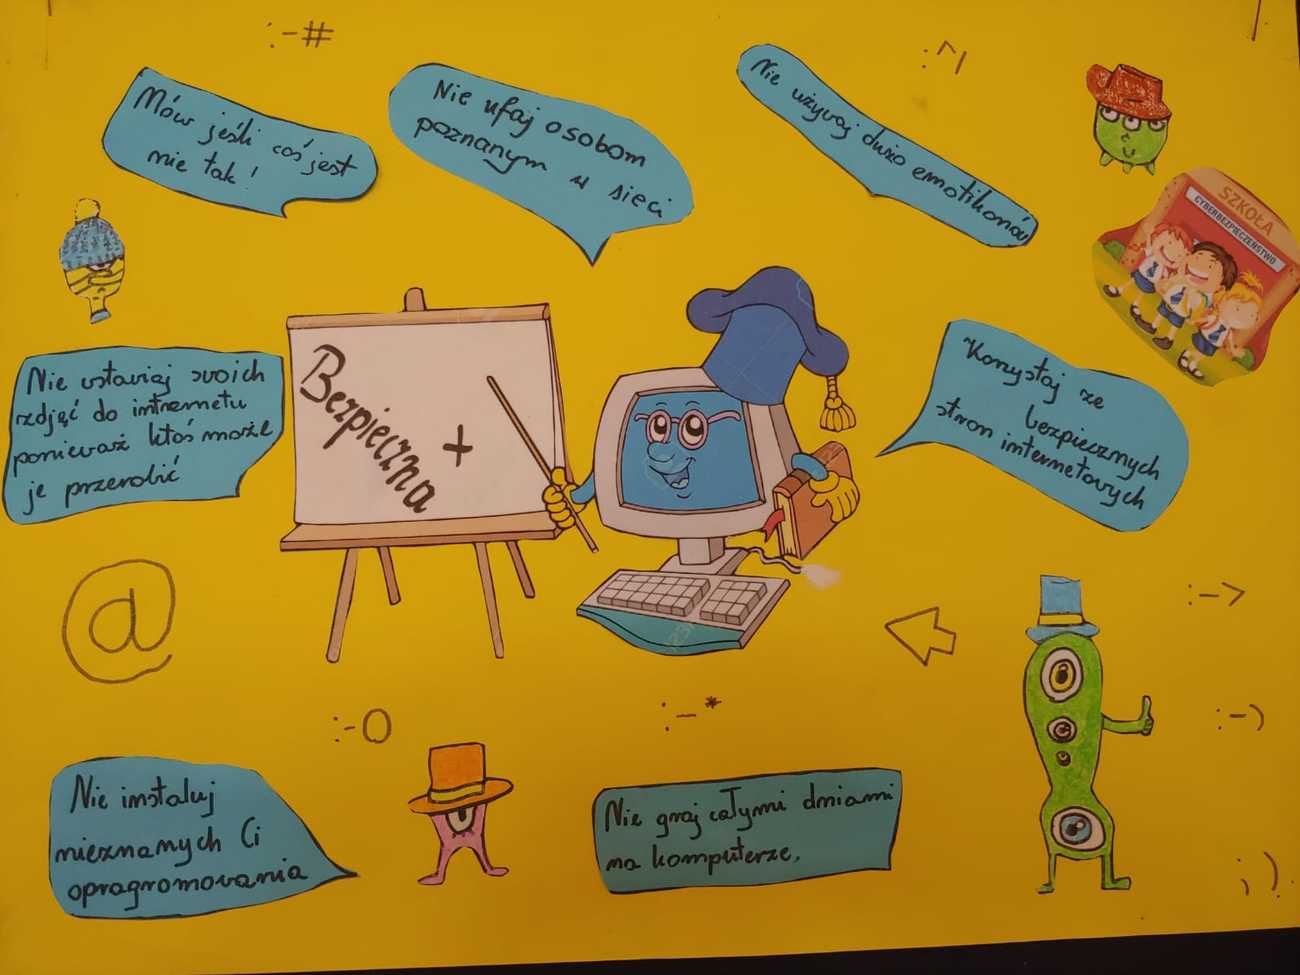 :-#
:^|
Mów jeśli coś jest
nie tak!
Nie ufaj osobom
poznanym w sieci
Nie używaj dużo emotikonów
SZKOŁA
CYBERBEZPIECZEŃSTWO
Bezpieczna
+
Nie wstawiaj swoich
zdjęć do internetu
ponieważ ktoś może
je przerobić
Korzystaj ze
bezpiecznych
stron internetowych
@
:->
:-O
:-*
:-)
Nie instaluj
nieznanych Ci
opragromowania
Nie graj całymi dniami
na komputerze.
;)